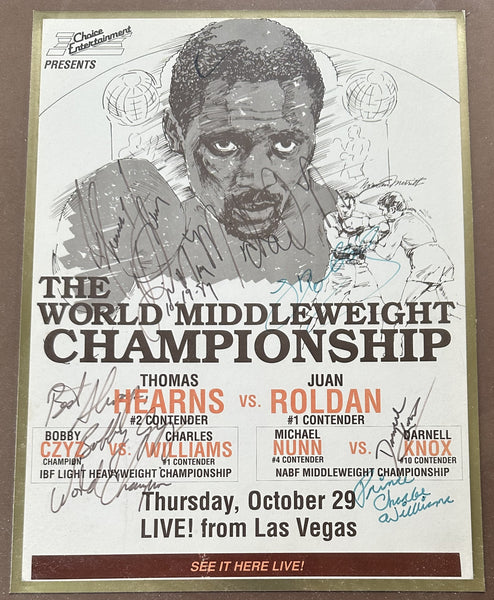 Choice
Entertainment
PRESENTS
THE
WORLD MIDDLEWEIGHT
CHAMPIONSHIP
THOMAS JUAN
HEARNS VS. ROLDAN
#2 CONTENDER #1 CONTENDER
BOBBY CHARLES MICHAEL DARNELL
CZYZ VS. WILLIAMS NUNN VS. KNOX
CHAMPION #1 CONTENDER #4 CONTENDER #10 CONTENDER
IBF LIGHT HEAVYWEIGHT CHAMPIONSHIP NABF MIDDLEWEIGHT CHAMPIONSHIP
Best Wishes
Bobby Czyz
World Champion
Thursday, October 29
LIVE! from Las Vegas
Prince
Charles
Williams
SEE IT HERE LIVE!